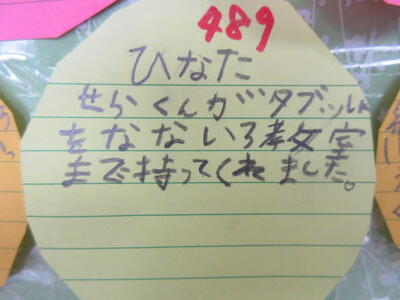 489
ひなた
せらくんがタブット
をなないろ教室
まで持ってくれました。